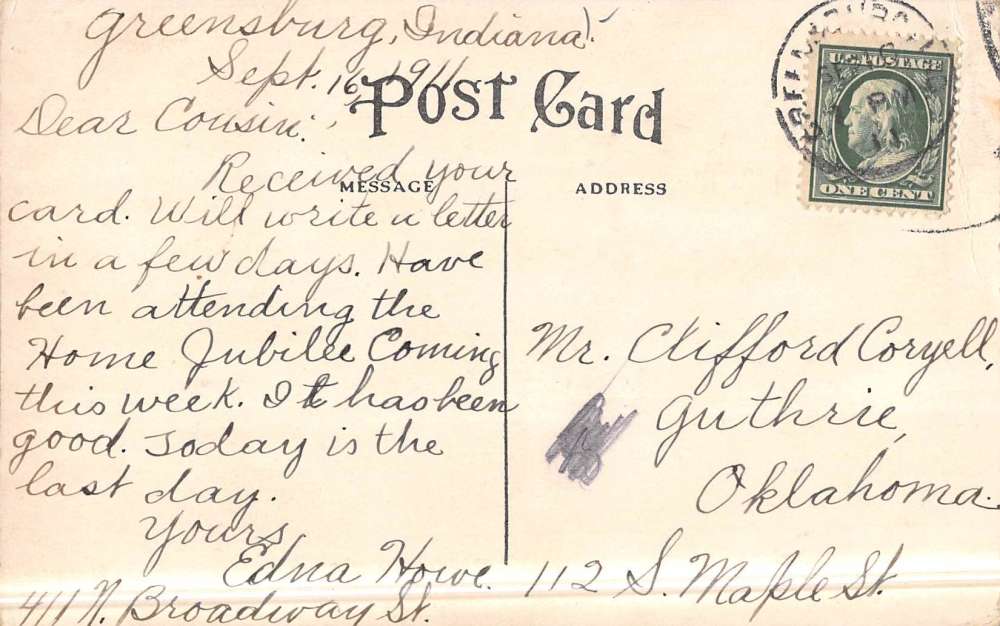 Greensburg, Indiana.
Sept. 16, 1911
Post Card
Dear Cousin:
Received your
MESSAGE
card. Will write a letter
in a few days. Have
been attending the
Home Jubilee Coming
this week. It has been
good. Today is the
last day.
Yours,
Edna Howe.
411 N. Broadway St.
ADDRESS
Mr. Clifford Coryell,
Guthrie,
Oklahoma.
112 S. Maple St.
U.S. POSTAGE
ONE CENT
PM
11